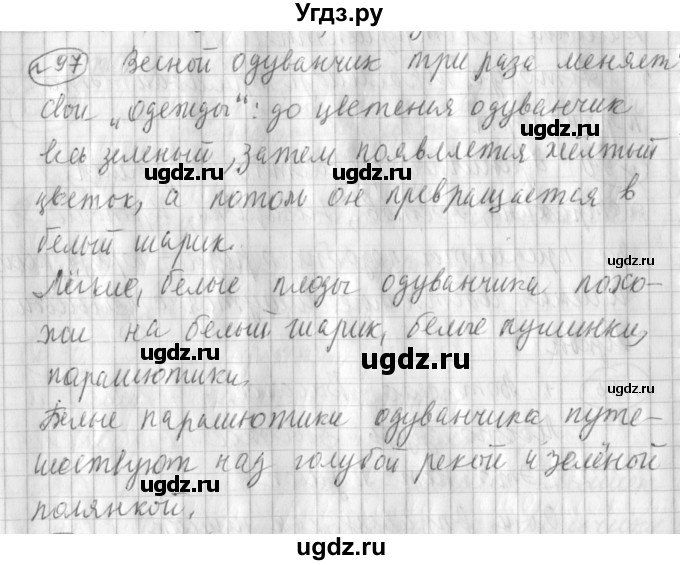 Угдз.ру
№97 Весной одуванчик три раза меняет
свои „одежды“: до цветения одуванчик
ugdz.ru
весь зеленый, затем появляется жёлтый
ugdz.ru
цветок, а потом он превращается в
белый шарик.
ugdz.ru
Лёгкие, белые плоды одуванчика похо-
жи на белый шарик, белые пушинки,
ugdz.ru ugdz.ru
парашютики.
Белые парашютики одуванчика путе-
ugdz.ru
шествуют над голубой рекой и зелёной
ugdz.ru
полянкой.
ugdz.ru
ugdz.ru